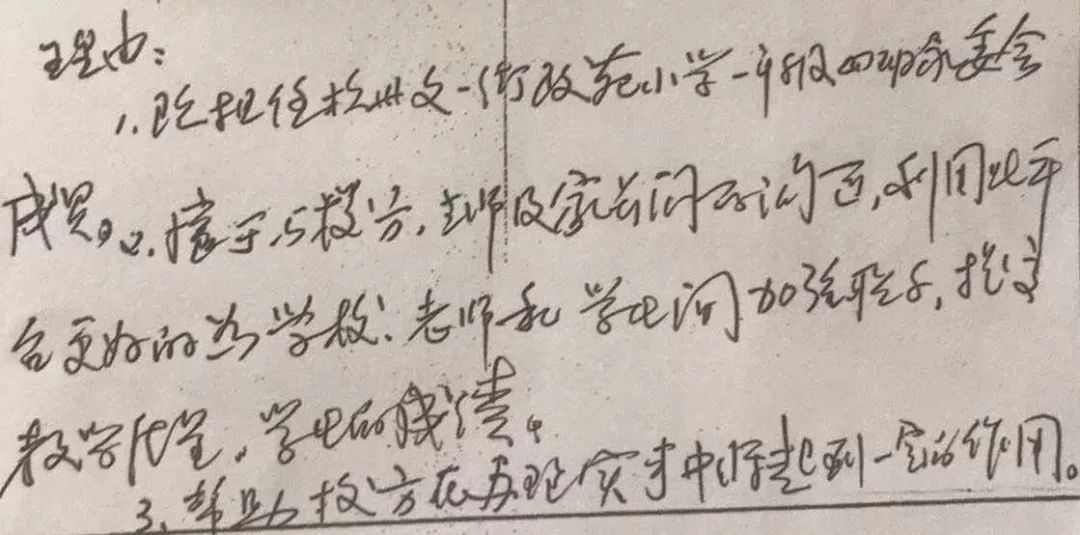 理由:
1.现担任杭州文一街政苑小学一年级四班家委会
成员。2.擅于与校方,老师及家长们的沟通,利用此平
台更好的为学校.老师和学生间加强联系,提高
教学质量,学生的成绩。
3、帮助校方在办理实事中将起到一定的作用。